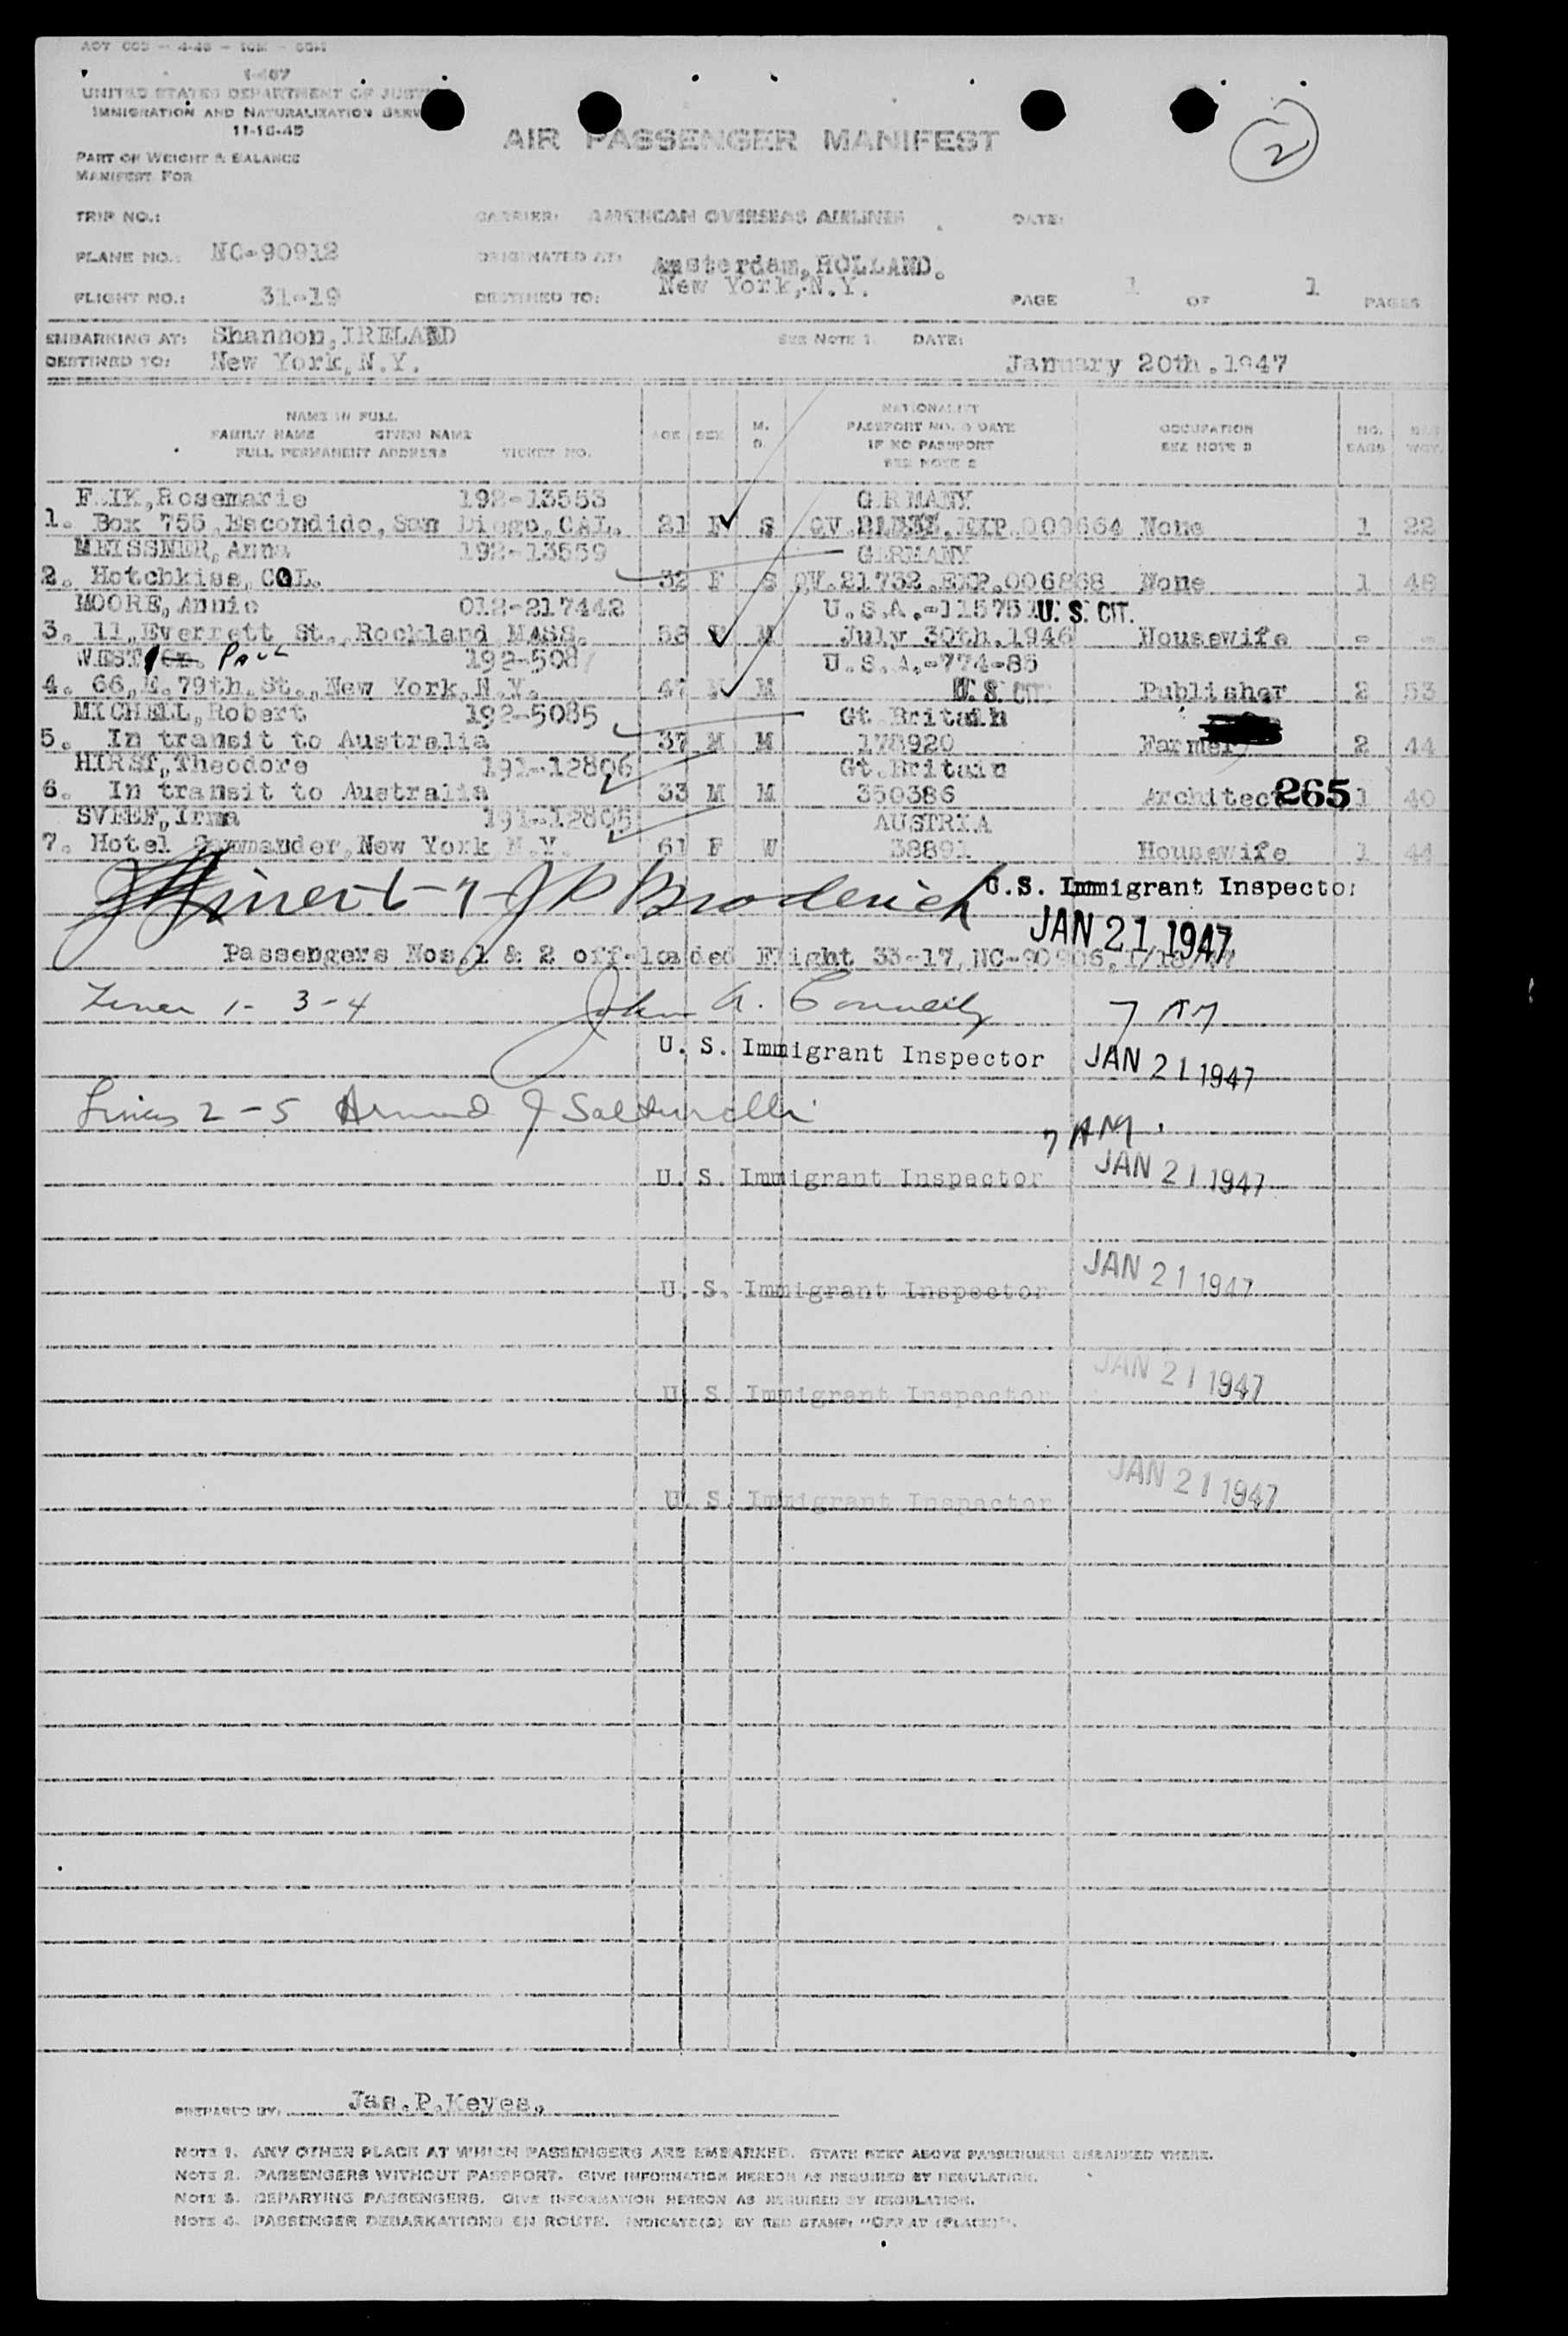 1-467
UNITED STATES DEPARTMENT OF JUST
IMMIGRATION AND NATURALIZATION SERV
11-16-45
AIR PASSENGER MANIFEST
2
PART OF WEIGHT & BALANCE
MANIFEST FOR
TRIP NO.: CARRIER: AMERICAN OVERSEAS AIRLINES DATE:
PLANE NO.: NC-90912 ORIGINATED AT: Amsterdam, HOLLAND.
FLIGHT NO.: 31-19 DESTINED TO: New York, N.Y. PAGE 1 OF 1 PAGES
EMBARKING AT: Shannon, IRELAND SEE NOTE 1. DATE:
DESTINED TO: New York, N.Y. January 20th. 1947
NAME IN FULL
FAMILY NAME GIVEN NAME
FULL PERMANENT ADDRESS TICKET NO.
AGE SEX M. S.
NATIONALITY
PASSPORT NO. & DATE
IF NO PASSPORT
SEE NOTE 2
OCCUPATION
SEE NOTE 3
NO. BAGS
WGT.
Rosemarie 192-13553 GERMANY
1. Box 755, Escondido, San Diego, CAL. 21 F S QV EXP. 009664 None 1 22
MEISSNER, Anna 192-13559 GERMANY
2. Hotchkiss, COL. 32 F S QV.21732.EXP.006868 None 1 48
MOORE, Annie 012-217442 U.S.A.-115751 U. S. CIT.
3. 11, Everrett St., Rockland, MASS. 58 F M July 30th, 1946 Housewife - -
WEST PAUL 192-508 U.S.A.-774-85
4. 66, E. 79th. St., New York, N.Y. 47 M M U. S. CIT. Publisher 2 53
MICHELL, Robert 192-5085 Gt Britain
5. In transit to Australia 37 M M 178920 Farmer 2 44
HIRST, Theodore 191-12806 Gt. Britain
6. In transit to Australia 33 M M 350386 Architect 265 1 40
Irma 191-12805 AUSTRIA
7. Hotel Commander, New York N.Y. 61 F W 38891 Housewife 1 44
Lines 6-7 J P Broderick U.S. Immigrant Inspector
JAN 21 1947
Passengers Nos. 1 & 2 off-loaded Flight 33-17, NC-90906,
Lines 1- 3-4 John A. Connelly 7 AM
U. S. Immigrant Inspector JAN 21 1947
Lines 2-5 Armand J 7 AM.
U. S. Immigrant Inspector JAN 21 1947
U. S. Immigrant Inspector JAN 21 1947
U. S. Immigrant Inspector JAN 21 1947
U. S. Immigrant Inspector JAN 21 1947
PREPARED BY: Jas. P. Keyes,
NOTE 1. ANY OTHER PLACE AT WHICH PASSENGERS ARE EMBARKED. STATE NEXT ABOVE PASSENGERS EMBARKED THERE.
NOTE 2. PASSENGERS WITHOUT PASSPORT. GIVE INFORMATION HEREON AS REQUIRED BY REGULATION.
NOTE 3. DEPARTING PASSENGERS. GIVE INFORMATION HEREON AS REQUIRED BY REGULATION.
NOTE 4. PASSENGER DEBARKATIONS EN ROUTE. INDICATE(D) BY RED STAMP: "OFF AT (PLACE)".